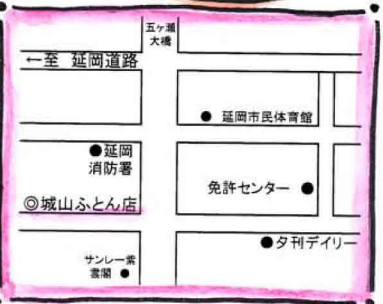 五ヶ瀬
大橋
←至 延岡道路
● 延岡市民体育館
●延岡
消防署
免許センター ●
◎城山ふとん店
●夕刊デイリー
サンレー紫
雲閣 ●